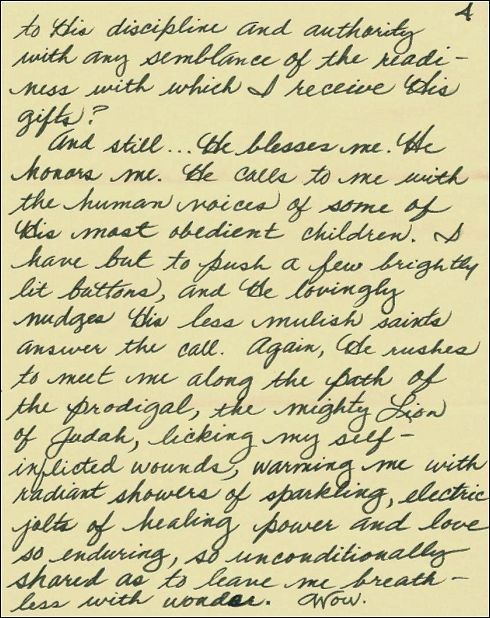 4
to His discipline and authority
with any semblance of the readi-
ness with which I receive His
gifts?
And still... He blesses me. He
honors me. He calls to me with
the human voices of some of
His most obedient children. I
have but to push a few brightly
lit buttons, and He lovingly
nudges His less mulish saints
answer the call. Again, He rushes
to meet me along the path of
the prodigal, the mighty Lion
of Judah, licking my self-
inflicted wounds, warming me with
radiant showers of sparkling, electric
jolts of healing power and love
so enduring, so unconditionally
shared as to leave me breath-
less with wonder. Wow.